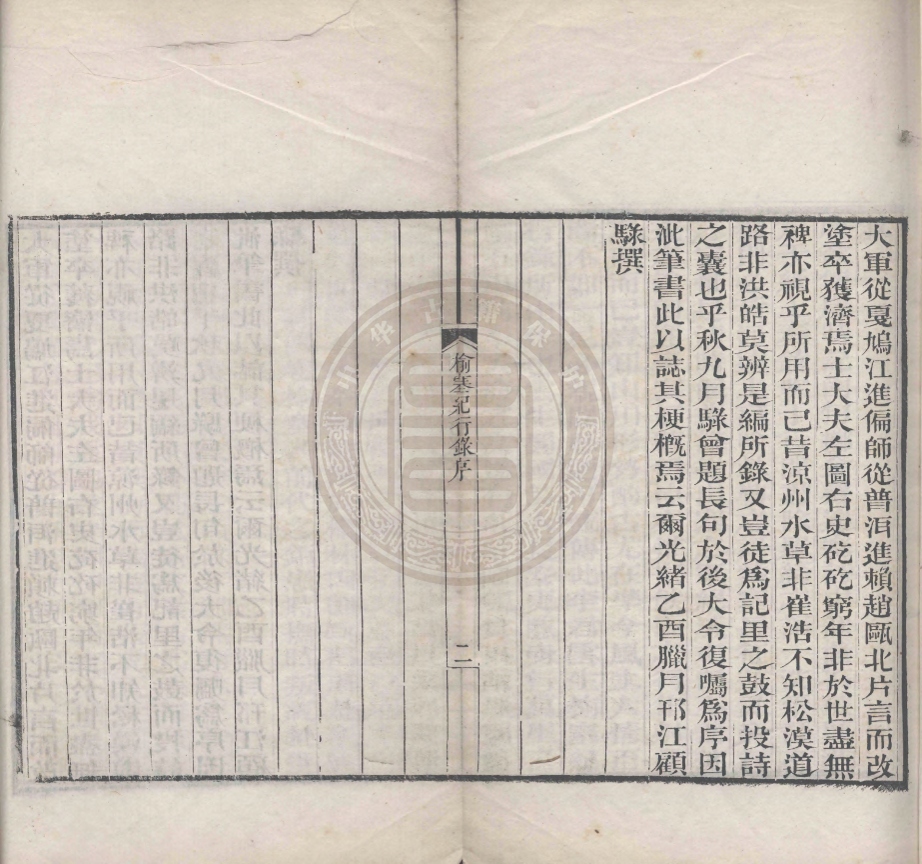 大軍從戛鳩江進偏師從普洱進賴趙甌北片言而改
塗卒獲濟焉士大夫左圖右史矻矻窮年非於世盡無
裨亦視乎所用而已昔涼州水草非崔浩不知松漠道
路非洪皓莫辨是編所錄又豈徒為記里之鼓而投詩
之囊也乎秋九月騄曾題長句於後大令復囑為序因
泚筆書此以誌其梗概焉云爾光緒乙酉臘月邗江顧
騄撰
榆塞紀行錄序
二